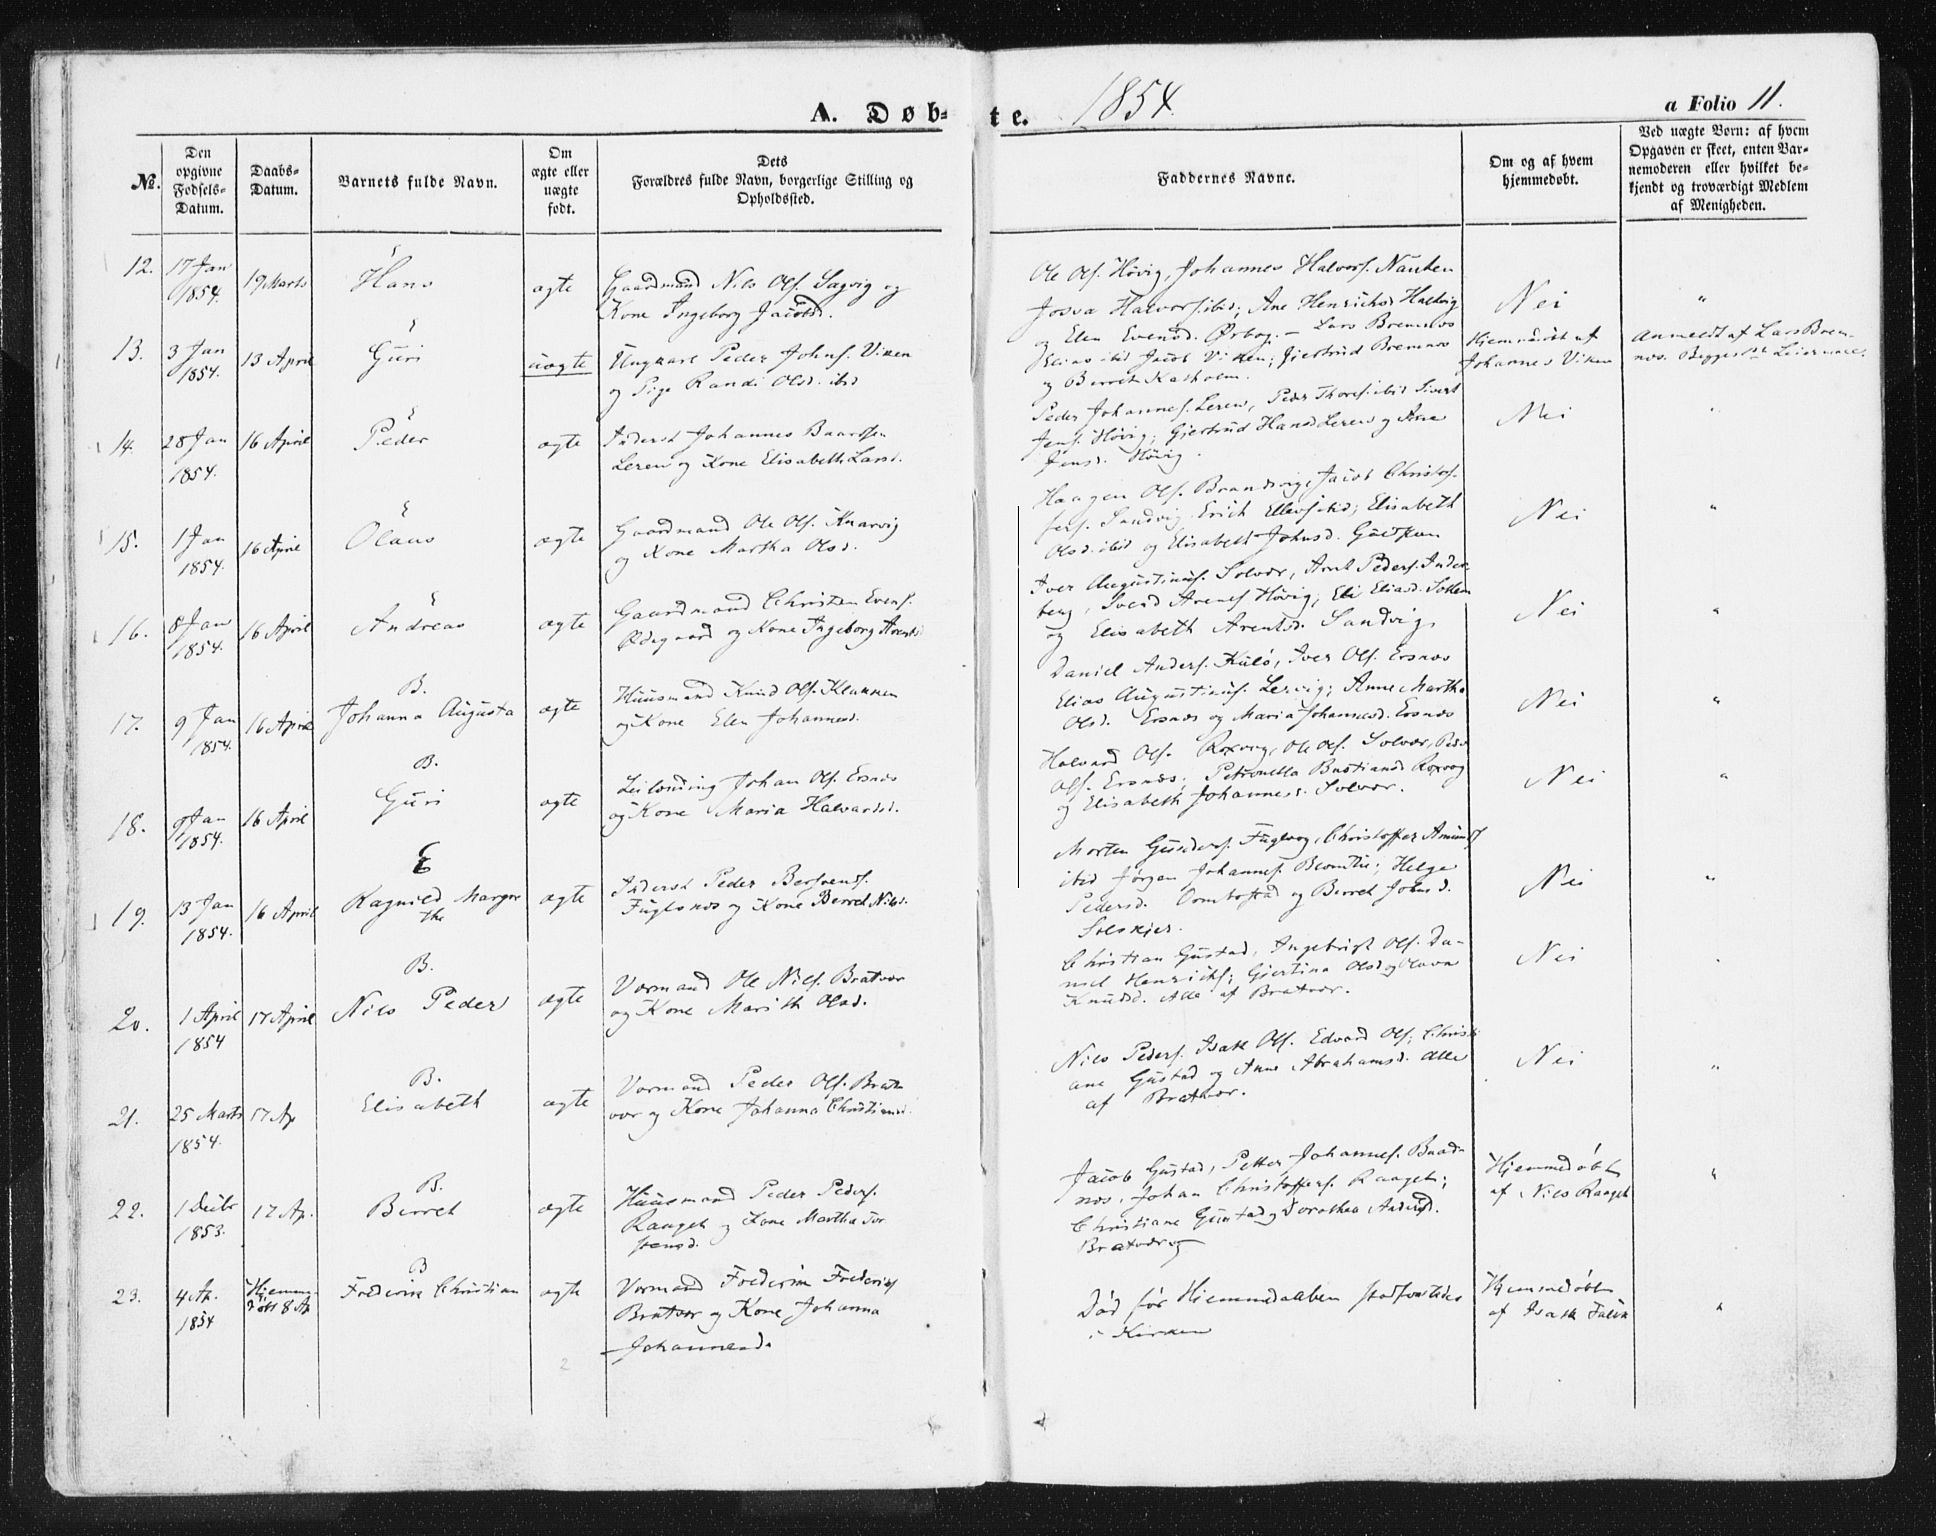 A. Døb-
te. 1854.
a Folio 11.
No.
Den opgivne Fødsels-Datum.
Daabs-Datum.
Barnets fulde Navn.
Om ægte eller uægte født.
Dets Forældres fulde Navn, borgerlige Stilling og Opholdssted.
Faddernes Navne.
Om og af hvem hjemmedøbt.
Ved uægte Børn: af hvem Opgaven er skeet, enten Barnemoderen eller hvilket bekjendt og troværdigt Medlem af Menigheden.
12.
17 Jan
1854.
19 Marts
E
Hans
ægte
Gaardmand Nils Ols. Sagvig og
Kone Ingeborg Jacobsd.
Ole Ols. Høvig, Johannes Halvors.
Josva Halvors. ibid; Ane Henriksd
og Elen Evensd.
Nei
"
13.
3 Jan
1854.
13 April
E
Guri
uægte
Ungkarl Peder Johns. Viken
og Pige Randi Olsd. ibid
Lars Bremnes
Elias ibid Jacob Viken; Gjertrud Bremnes
og Berret
Hjemmedøbt af
Johannes Viken
Anmeldt af Lars Brem-
nes. Begges 1ste Leiermaal.
14.
28 Jan
1854.
16 April
E
Peder
ægte
Inderst Johannes Baardsen
Leren og Kone Elisabeth Larsd.
Peder Johannes. Leren, Peder Thores. ibid Sivert
Jens. Høvig; Gjertrud Hansd Leren og Ane
Jensd. Høvig.
Nei
"
15.
1 Jan
1854.
16 April
E
Olaus
ægte
Gaardmand Ole Ols. Knarvig
og Kone Martha Olsd.
Haagen Ols. Brandvig, Jacob Christof-
fers. Sandvig, Erich Ellevs. ibid; Elisabeth
Olsd. ibid og Elisabeth Johnsd.
Nei
"
16.
8 Jan
1854.
16 April
E
Andreas
ægte
Gaardmand Christen Evens.
Ødegaard og Kone Ingeborg Arentsd
Iver Augustinus. Solvær, Arnt Peders. Inder-
berg, Svend Arenes Høvig; Eli Eliasd.
og Elisabeth Arentsd. Sandvig.
Nei
"
17.
9 Jan
1854.
16 April
B.
Johanna Augusta
ægte
Huusmand Knud Ols. Klakken
og Kone Elen Johannesd.
Daniel Anders. Kulø, Iver Ols. Ersnes
Elias Augustinus. Lervig; Anne Martha
Olsd. Ersnes og Maria Johannesd. Ersnes
Nei
"
18.
9 Jan
1854.
16 April
B.
Guri
ægte
Leilænding Johan Ols. Ersnes
og Kone Maria Halvardsd.
Halvard Ols. Roxvog, Ole Ols. Solvær, Peder
Ols. Ersnes; Petronella Bastiansd Roxvog
og Elisabeth Johannesd. Solvær.
Nei
"
19.
13 Jan
1854.
16 April
E
Ragnild Margre
the
ægte
Inderst Peder Bersvends.
Fuglsnes og Kone Berret Nilsd.
Morten Fuglvog, Christoffer Amunds
ibid Jørgen Johannes. Blomlie; Helge
Pedersd. og Berret Johnsd.
Solskjer.
Nei
"
20.
1 April
1854
17 April
B.
Nils Peder
ægte
Vormand Ole Nils. Bratvær
og Kone Marith Olsd.
Christian Gustad, Ingebrigt Ols. Da-
niel Henriks; Gjertina Olsd og Olava
Knudsd. Alle af Bratvær.
Nei
21.
25 Marts
1854.
17 Ap
B.
Elisabeth
ægte
Vormand Peder Ols. Brat-
vær og Kone Johanna Christiansd.
Nils Peders. Isak Ols. Edvard Ols; Christi-
ane Gustad og Anne Abrahamsd. Alle
af Bratvær.
Nei
"
22.
1 Decbr
1853.
17 Ap.
B.
Berret
ægte
Huusmand Peder Peders.
Raaget og Kone Martha Tor
stensd.
Jacob Gustad, Petter Johannes. Baad-
nes, Johan Christoffers. Raaget;
Christiane Gustad og Dorothea Andersd.
Bratvær
Hjemmedøbt
af Nils Raaget
"
23.
4 Ap.
1854
Hjemme-
døbt 8 Ap
B
Frederik Christian
ægte
Vormand Frederik Frederiks
Bratvær og Kone Johanna
Johannesd.
Død før Hjemmedaaben stadfæstedes
i Kirken
Hjemmedøbt
af Isak Falck
"